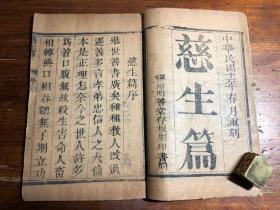 中華民國十二年春月重刻
慈生篇
州明善堂存板刷印書
慈生篇序
舉世善書廣矣種種教人改過
遷善多言孝弟忠信人之大倫
本是正理怎奈今之世人許多
為善口腹無故殺生害命人畜
相轉換口相吞總無了期立功